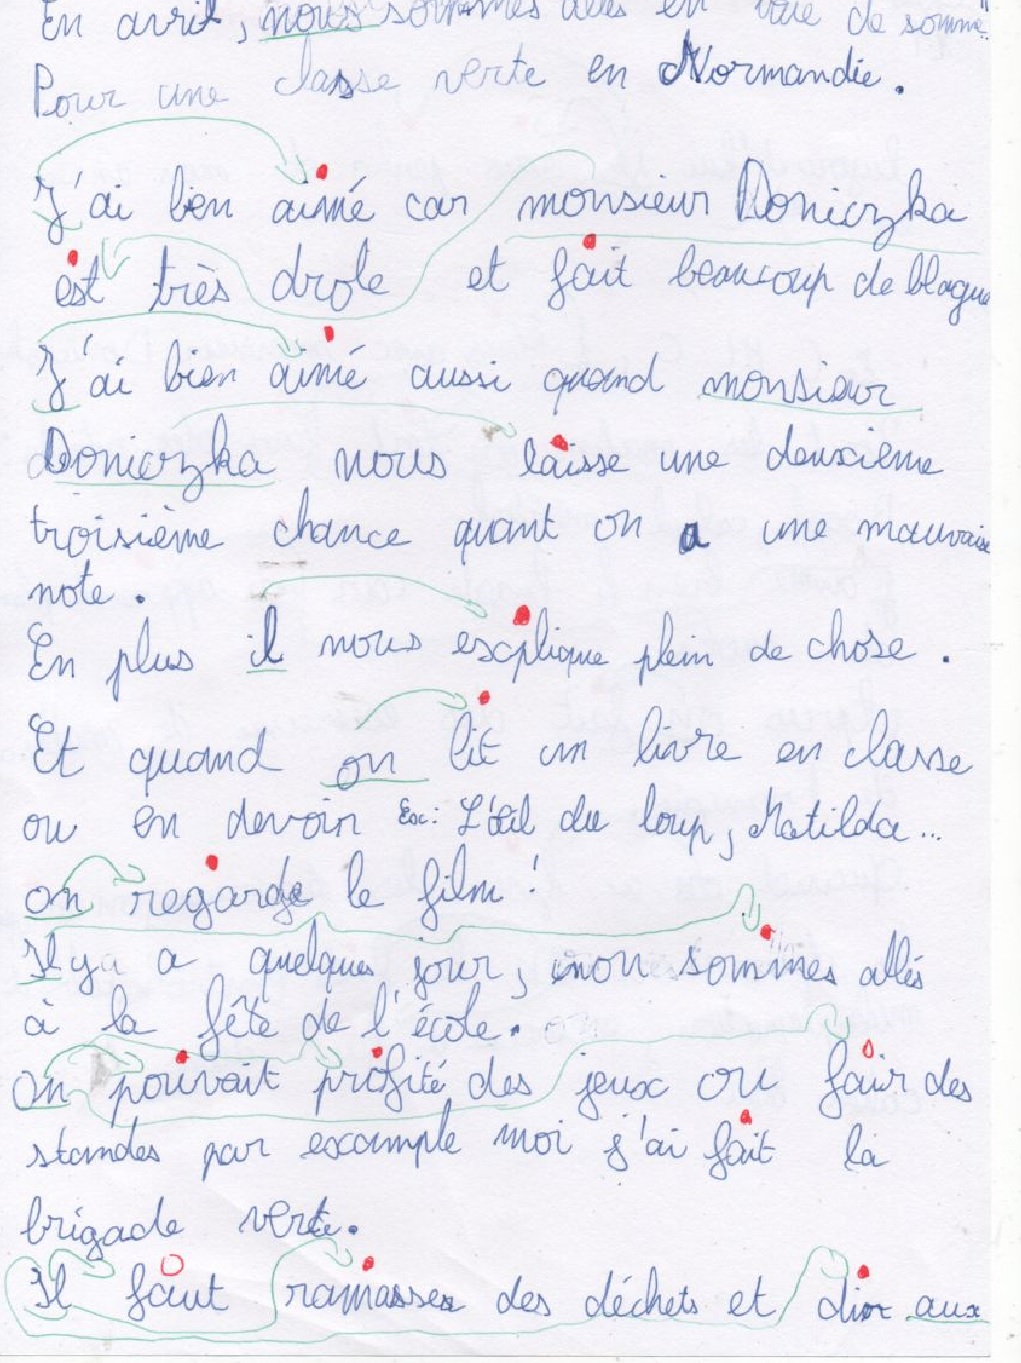 En avril, nous sommes allés en baie de somme
Pour une classe verte en Normandie.
J'ai bien aimé car monsieur Doniczka
est très drole et fait beaucoup de blague
J'ai bien aimé aussi quand monsieur
Doniczka nous laisse une deuxième
troisième chance quant on a une mauvaise
note.
En plus il nous esxplique plein de chose.
Et quand on lit un livre en classe
ou en devoir Ex: L'œil du loup, Matilda...
on regarde le film!
Il ya a quelques jour, non sommes allés
à la fête de l'école.
On pouvait profité des jeux ou fair des
standes par example moi j'ai fait la
brigade verte.
Il faut ramasses des déchets et dir aux